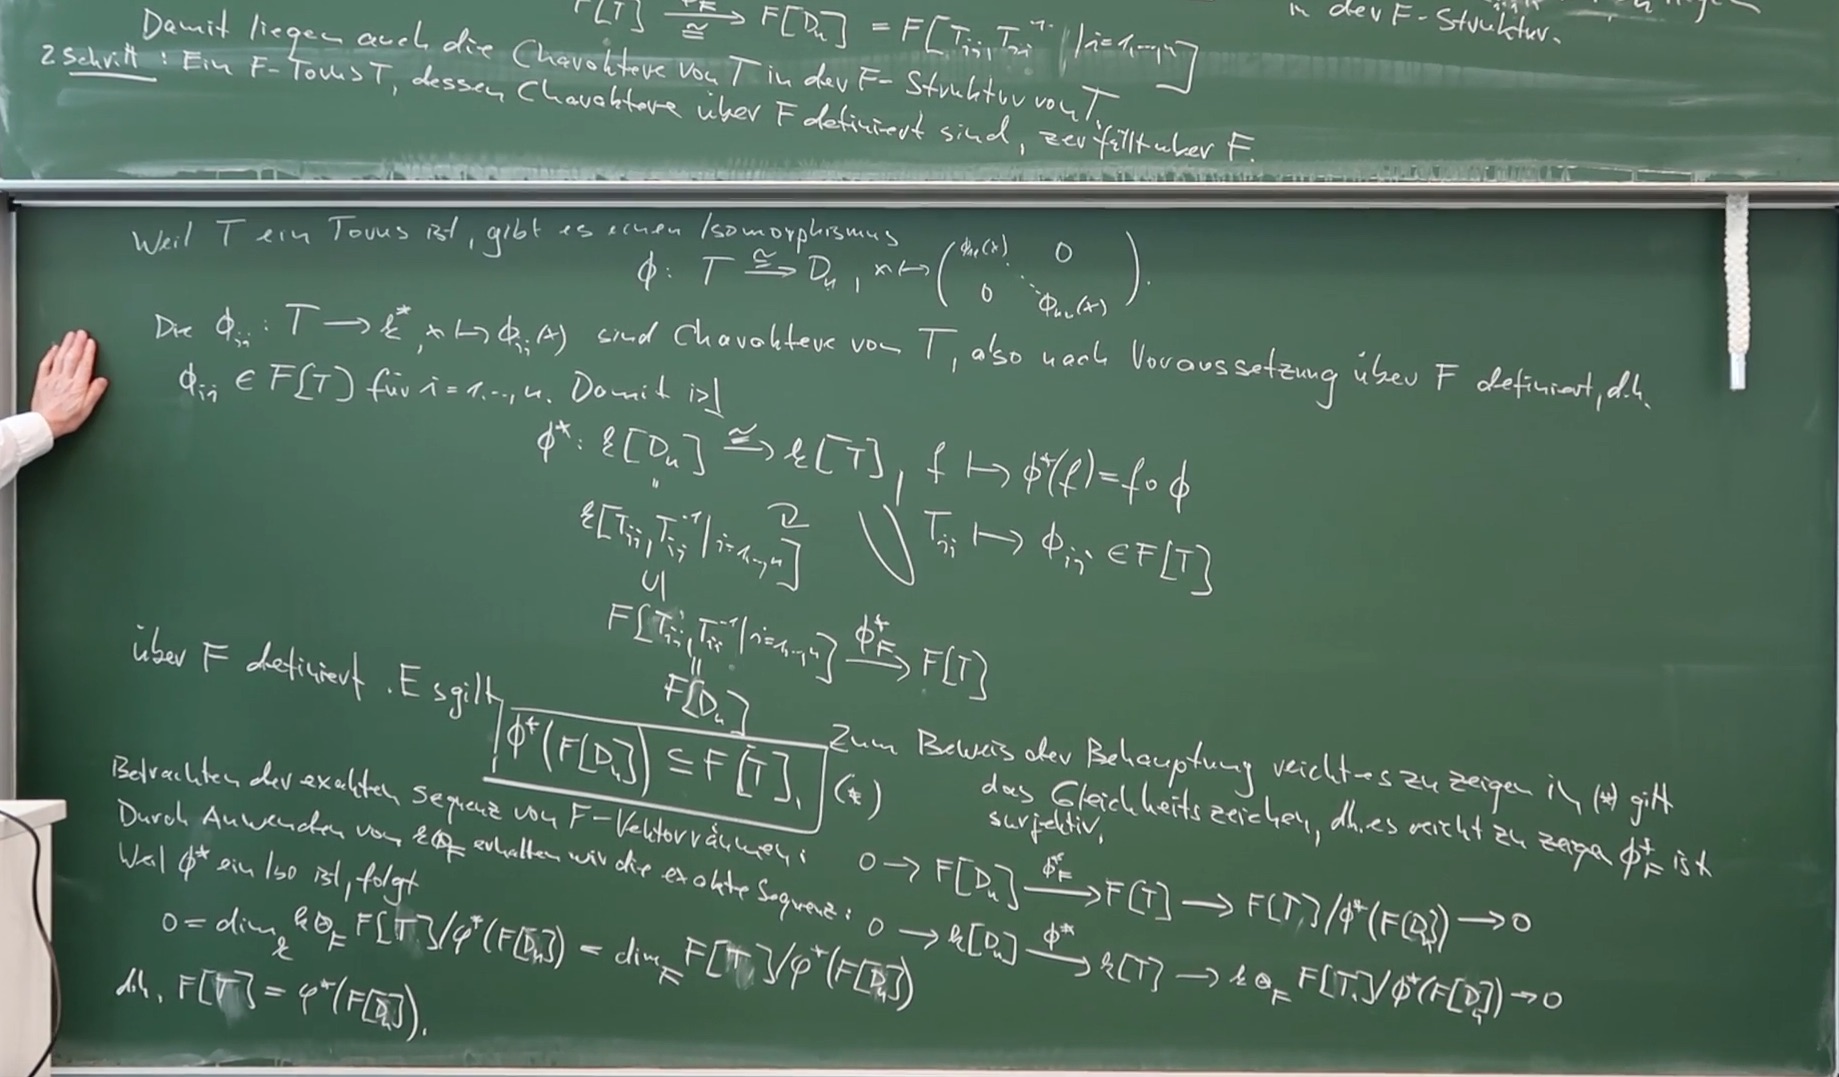 F[T] ≅→ F[D_n] = F[T_ii, T_ii^-1 | i=1,...,n]
in der F-Struktur.
Damit liegen auch die Charaktere von T in der F-Struktur von T.
2. Schritt: Ein F-Torus T, dessen Charaktere über F definiert sind, zerfällt über F.
Weil T ein Torus ist, gibt es einen Isomorphismus
ϕ: T ≅→ D_n, x ↦ ( ϕ_11(x) 0
0 ϕ_nn(x) ).
Die ϕ_ii: T → k*, x ↦ ϕ_ii(x) sind Charaktere von T, also nach Voraussetzung über F definiert, d.h.
ϕ_ii ∈ F[T] für i=1,...,n. Damit ist
ϕ*: k[D_n] ≅→ k[T], f ↦ ϕ*(f) = f∘ϕ
"
k[T_ii, T_ii^-1 | i=1,...,n] T_ii ↦ ϕ_ii ∈ F[T]
∪|
F[T_ii, T_ii^-1 | i=1,...,n] ϕ*_F→ F[T]
"
F[D_n]
über F definiert. Es gilt
ϕ*(F[D_n]) ⊆ F[T], (*)
Zum Beweis der Behauptung reicht es zu zeigen in (*) gilt
das Gleichheitszeichen, d.h. es reicht zu zeigen ϕ*_F ist
surjektiv.
Betrachten der exakten Sequenz von F-Vektorräumen:
0 → F[D_n] ϕ*_F→ F[T] → F[T]/ϕ*(F[D_n]) → 0
Durch Anwenden von k⊗_F erhalten wir die exakte Sequenz:
0 → k[D_n] ϕ*→ k[T] → k⊗_F F[T]/ϕ*(F[D_n]) → 0
Weil ϕ* ein Iso ist, folgt
0 = dim_k k⊗_F F[T]/φ*(F[D_n]) = dim_F F[T]/φ*(F[D_n])
d.h. F[T] = φ*(F[D_n]).